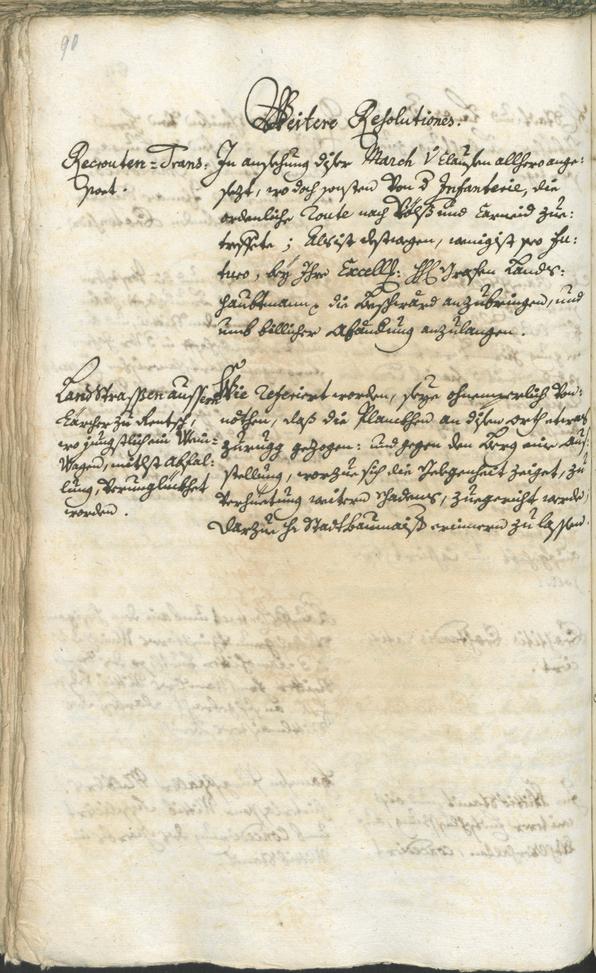 90
Weitere Resolutiones:
Recrouten-Trans-
port.
In ansehung diser March Clausen allhero ange-
sezt, wo doch sonsten von d Infanterie, die
ordenliche Route nach Völß und Carneid zue-
treffete; Alß ist destwegen, wenigist pro fu-
turo, bey Ihro Excellz: H: Grafen Lands-
haubtmann, die Beschwärd anzubringen, und
umb billicher Abändung anzulangen.
Landstrassen ausser
Carcher zu Rentsch,
wo jüngsthin ein
Wagen, mitlst Abfal-
lung, verunglückhet
worden.
Wie referiert worden, seye ohnentpörlich von-
nöthen, daß die Planckhen an disem orth etwas
zurugg gezogen: und gegen den Berg eine auf-
stellung, worzue sich die Gelegenheit zeiget, zu
verhuetung weitern schadens, zuegericht werde,
Darzue H: Stadtbaumaister erinnern zu lassen.